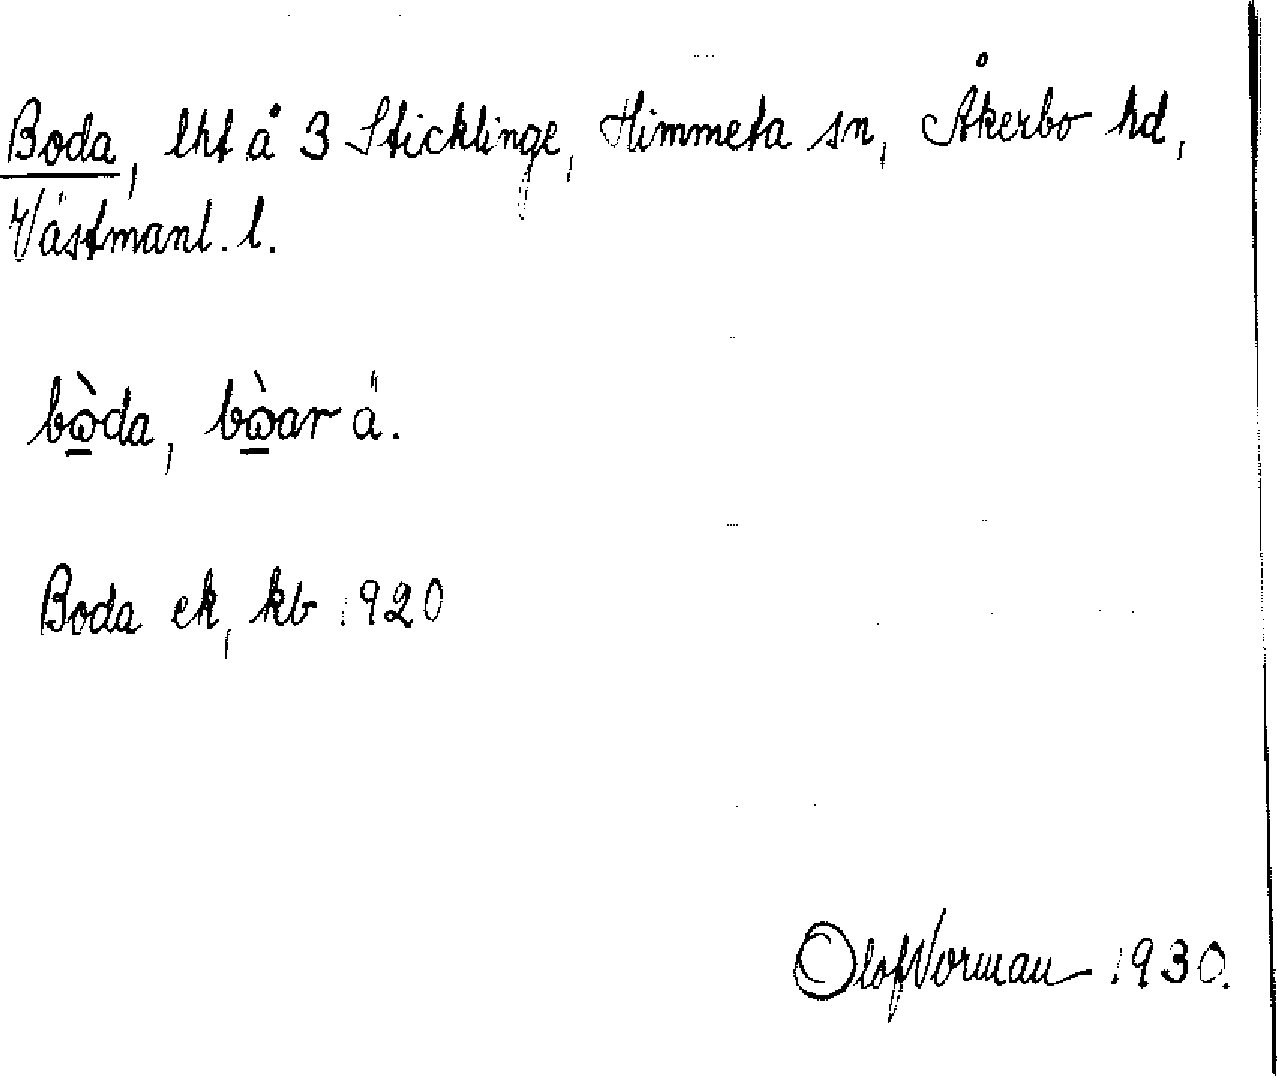 Boda, lht å 3 Sticklinge, Himmeta sn, Åkerbo hd,
Västmanl. l.
bὼ̲da, bὼ̲ar ä.
Boda ek, kb 1920
Olof Norman 1930.